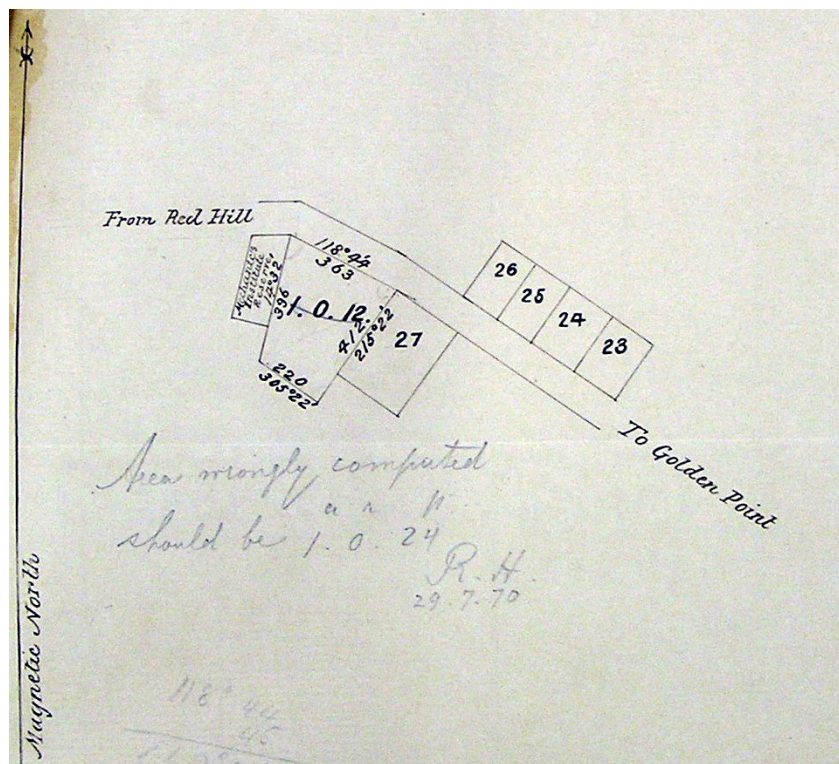 From Red Hill
118°44'
363
Mechanic's
Institute
Reserve
12°32'
396
1. 0. 12.
412
215°22'
220
305°22'
27
26
25
24
23
To Golden Point
Area wrongly computed
a r p
should be 1. 0. 24
R. H.
29.7.70
Magnetic North
118° 44